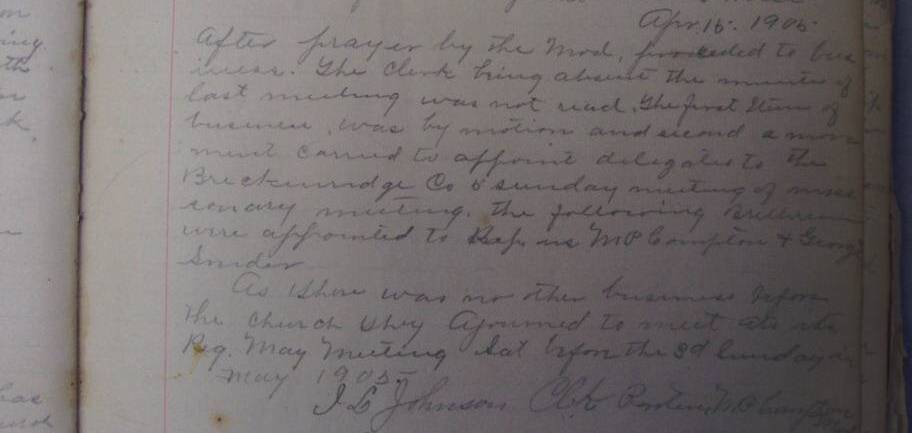 Apr. 15. 1905
After prayer by the Mod, proceeded to bus
iness. The Clerk being absent the minute of
last meeting was not read. The first Item of
business, was by motion and second a move
ment carried to appoint delegates to the
Breckenridge Co 5 Sunday meeting of miss
ionary meeting. The following Brethren
were appointed to Rep. us M P Compton & George
Snider
As there was no other business before
the church they Ajourned to meet at its
Reg. May Meeting Sat before the 3d Sunday in
May 1905-
J L Johnson Clk M P Compton